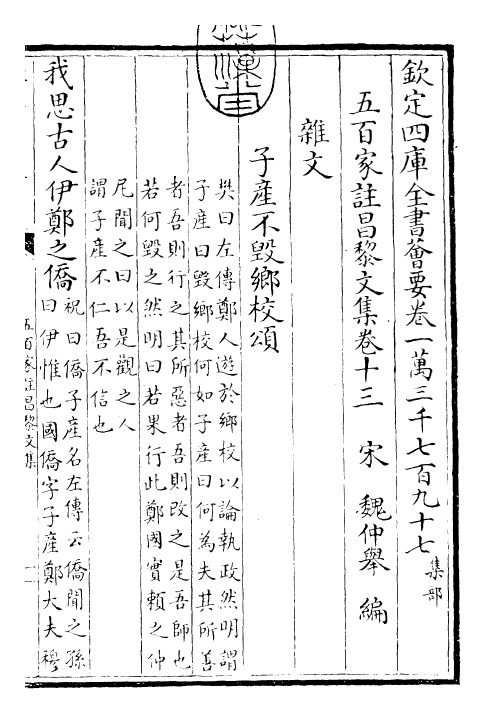 欽定四庫全書薈要卷一萬三千七百九十七 集部
五百家註昌黎文集卷十三 宋 魏仲舉 編
雜文
子產不毀鄉校頌
樊曰左傳鄭人遊於鄉校以論執政然明謂
子產曰毀鄉校何如子產曰何為夫其所善
者吾則行之其所惡者吾則改之是吾師也
若何毀之然明曰若果行此鄭國實賴之仲
尼聞之曰以是觀之人
謂子產不仁吾不信也
我思古人伊鄭之僑
祝曰僑子產名左傳云僑聞之孫
曰伊惟也國僑字子產鄭大夫穆
五百家註昌黎文集
一